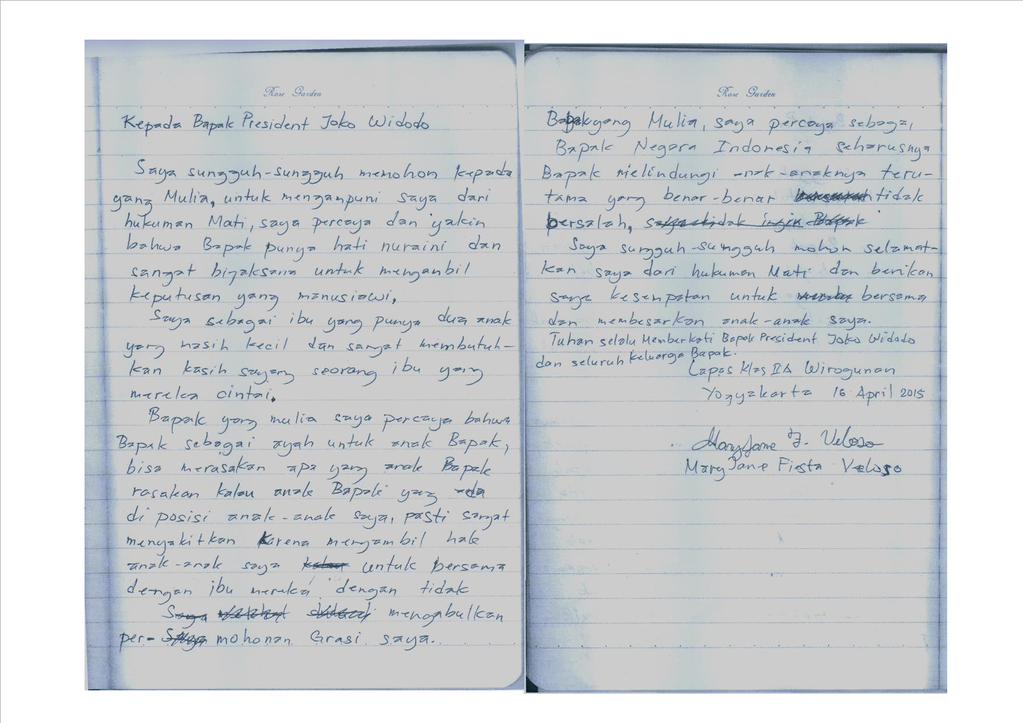 Rose Garden
Kepada Bapak President Joko Widodo
Saya sungguh-sungguh memohon kepada
yang Mulia, untuk mengampuni saya dari
hukuman Mati, saya percaya dan yakin
bahwa Bapak punya hati nuraini dan
sangat bijaksana untuk mengambil
keputusan yang manusiawi.
Saya sebagai ibu yang punya dua anak
yang masih kecil dan sangat membutuh-
kan kasih sayang seorang ibu yang
mereka cintai.
Bapak yang mulia saya percaya bahwa
Bapak sebagai ayah untuk anak Bapak,
bisa merasakan apa yang anak Bapak
rasakan kalau anak Bapak yang ada
di posisi anak-anak saya, pasti sangat
menyakitkan karena mengambil hak
anak-anak saya untuk bersama
dengan ibu mereka dengan tidak
Saya mengabulkan
per- Saya mohonan Grasi saya.
Rose Garden
Bapak yang Mulia, saya percaya sebagai
Bapak Negara Indonesia seharusnya
Bapak melindungi anak-anaknya teru-
tama yang benar-benar tidak
bersalah, saya tidak ingin Bapak
Saya sungguh-sungguh mohon selamat-
kan saya dari hukuman Mati dan berikan
saya kesempatan untuk bersama
dan membesarkan anak-anak saya.
Tuhan selalu Memberkati Bapak President Joko Widodo
dan seluruh keluarga Bapak.
Lapas Klas IIA Wirogunan
Yogyakarta 16 April 2015
MaryJane F. Veloso
MaryJane Fiesta Veloso